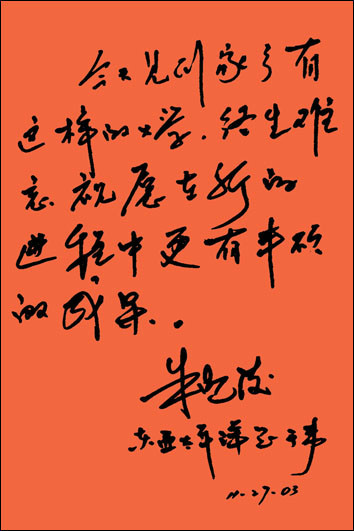 今天见到家乡有
这样的大学，终生难
忘。祝愿在新的
进程中更有丰硕
的成果。
朱
东亚太平洋
11-27-03